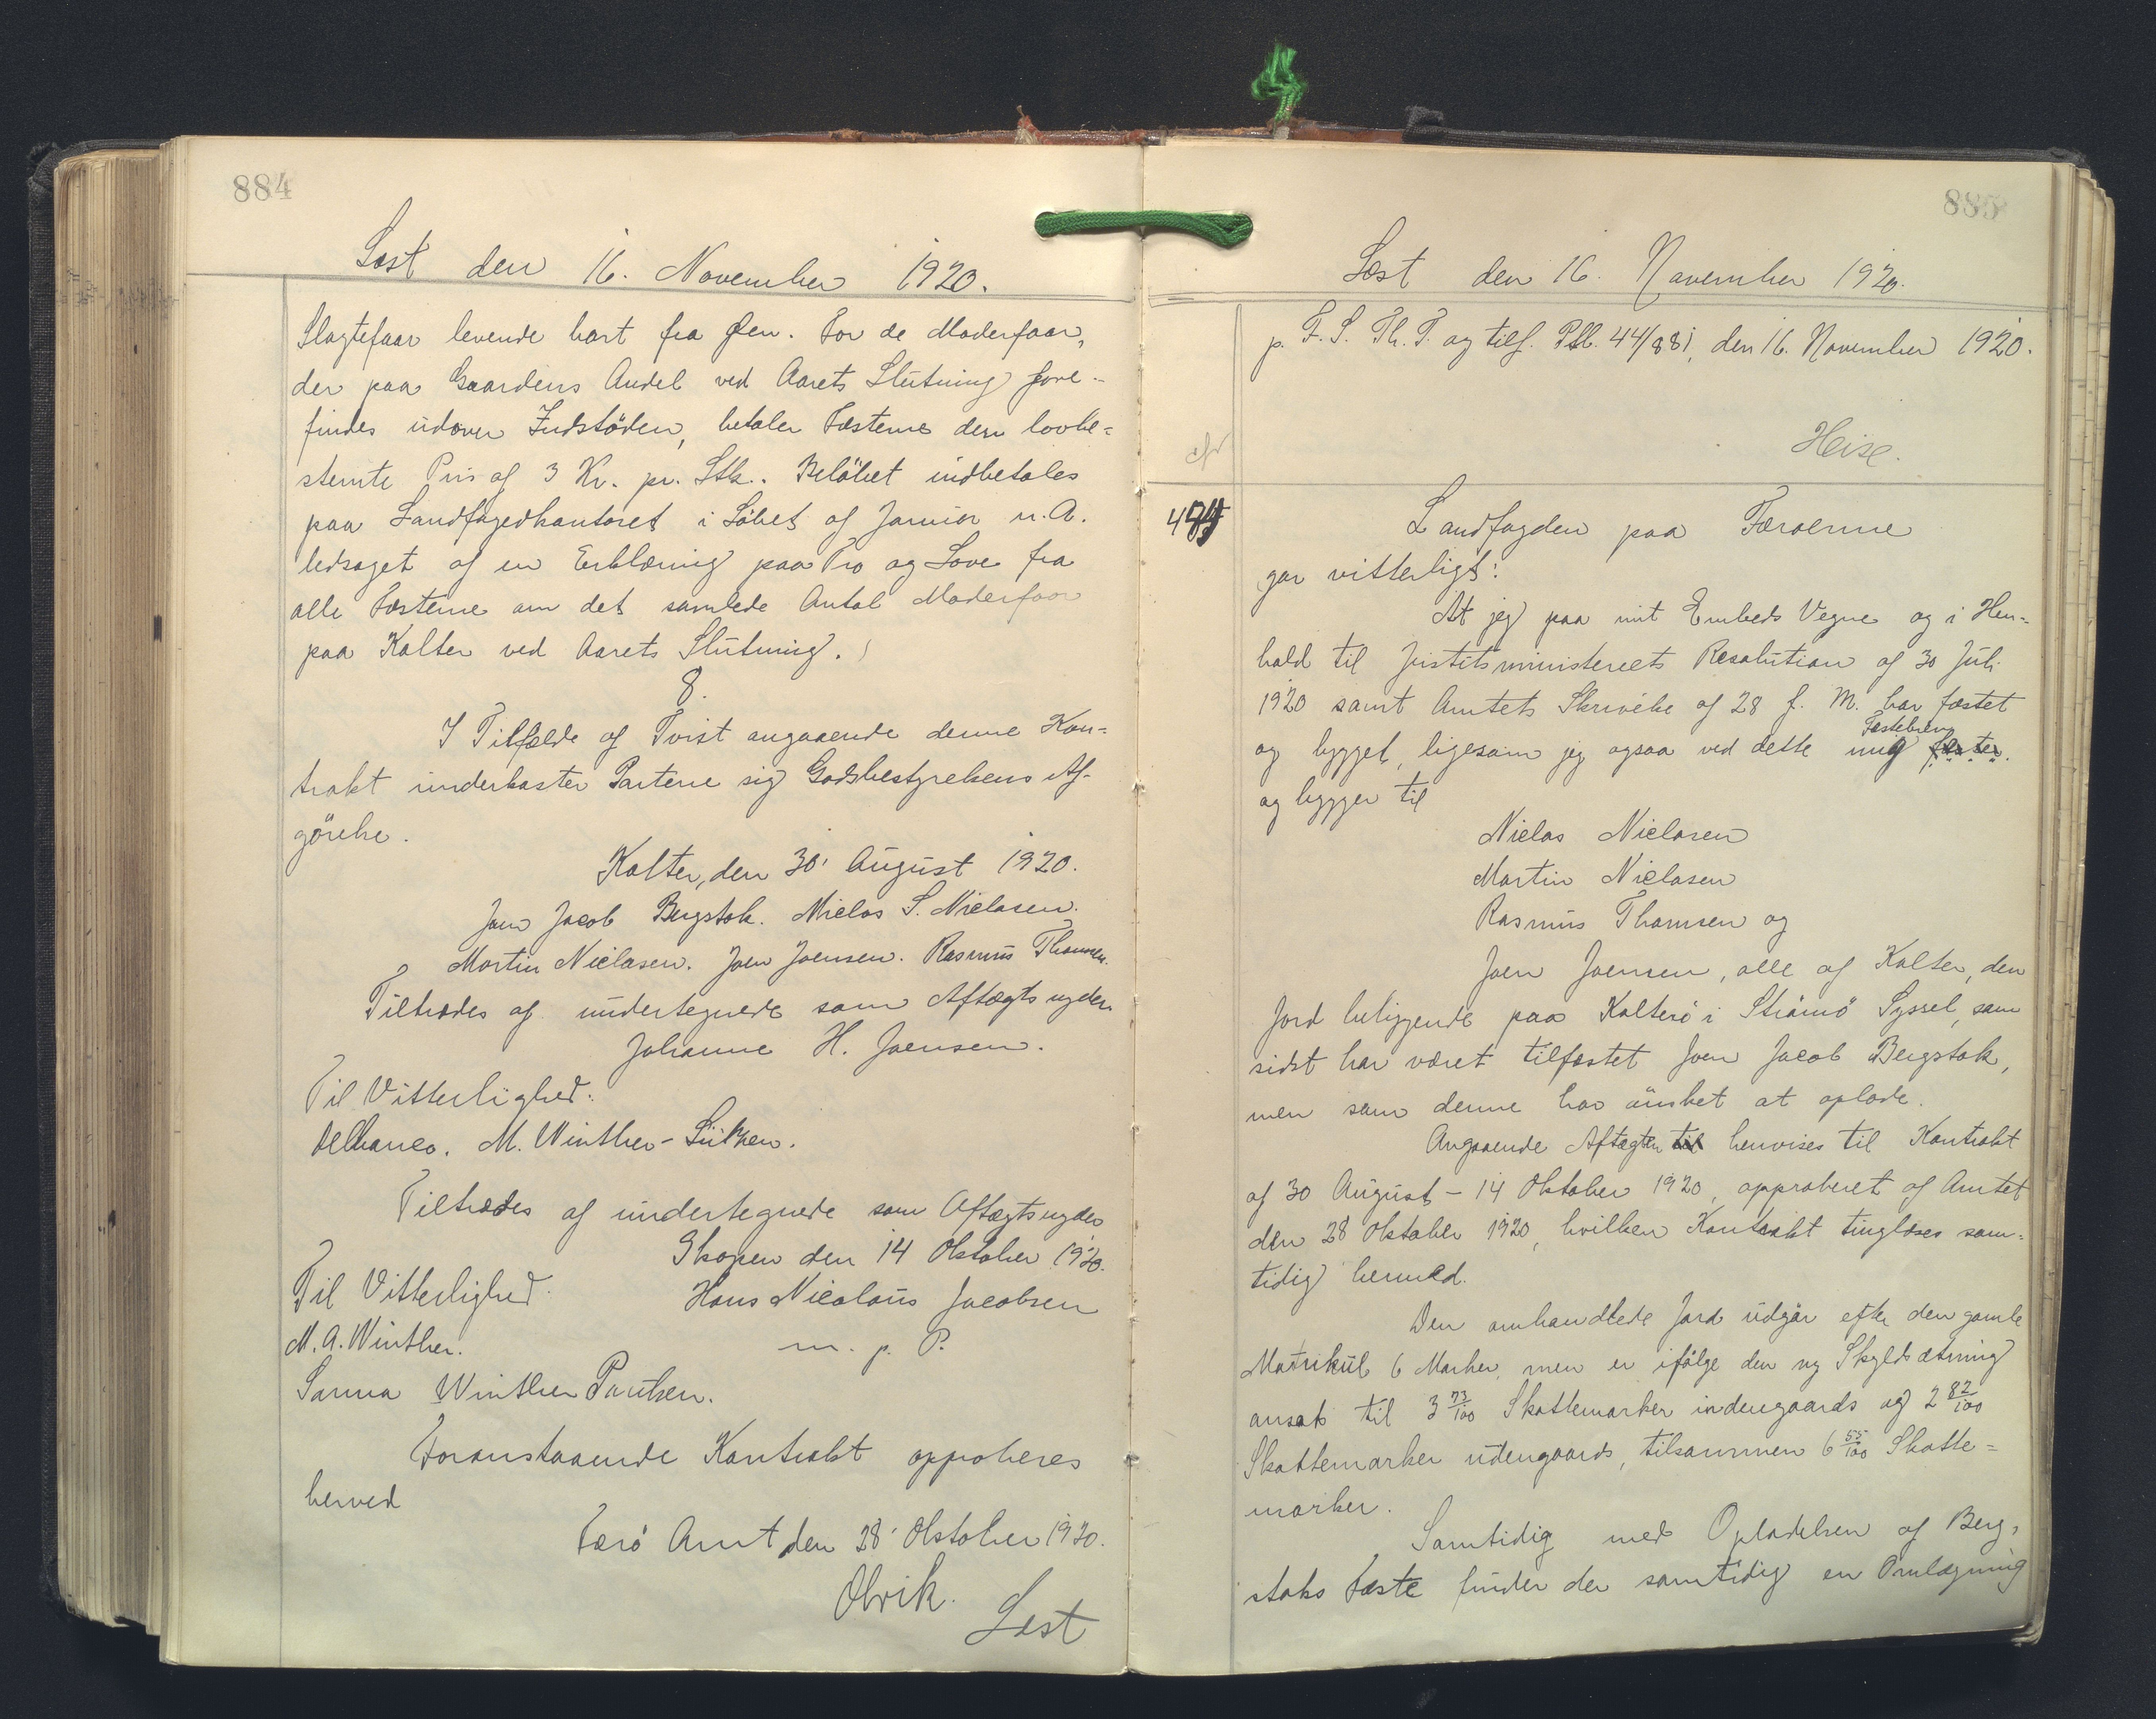 884
Læst den 16. November 1920.
Slagtefaar levende bort fra Øen. For de Moderfaar,
der paa Gaardens Andel ved Aarets Slutning fore-
findes udover Indstöden, betaler Fæsterne den lovbe=
stemte Pris af 3 Kr. pr. Stk.. Belöbet indbetales
paa Landfogedkontoret i Löbet af Januar n. A.
ledsaget af en Erklæring paa Tro og Love fra
alle Fæsterne om det samlede Antal Moderfaar
paa Kolter ved Aarets Slutning.
8.
I Tilfælde af Tvist angaaende denne Kon=
trakt underkaster Parterne sig Godsbestyrelsens Af-
görelse.
Kolter, den 30' August 1920.
Joen Jacob Bergstok. Niclas S. Niclasen.
Martin Niclasen. Joen Joensen. Rasmus Thomsen.
Tiltrædes af undertegnede som Aftægtsnyder.
Johanne H. Joensen.
Til Vitterlighed:
Delbanco. M. Winther-Lützen.
Tiltrædes af undertegnede som Aftægtsnyder
Skopen den 14 Oktober 1920.
Til Vitterlighed. Hans Nicolaus Jacobsen
M. A. Winther. m. p. P.
Sanna Winther Poulsen.
Foranstaaende Kontrakt approberes
herved
Færö Amt, den 28' Oktober 1920.
Olrik.
Læst
885
Læst den 16. November 1920.
p. F. S. Th. T. og tilf. Ptb. 44/881, den 16. November 1920.
Heise.
cfr
Landfogden paa Færoerne
gør vitterligt:
At jeg paa mit Embeds Vegne og i Hen=
hold til Justitsministeriets Resolution af 30 Juli
1920 samt Amtets Skrivelse af 28 f. M. har fæstet
og bygget, ligesom jeg ogsaa ved dette mig Fæstebrev fæster
og bygger til
Niclas Niclasen
Martin Niclasen
Rasmus Thomsen og
Joen Joensen, alle af Kolter, den
Jord beliggende paa Kolterö i Strömö Syssel, som
sidst har været tilfæstet Joen Jacob Bergstok,
men som denne har önsket at oplade.
Angaaende Aftægten til henvises til Kontrakt
af 30 August - 14 Oktober 1920, approberet af Amtet
den 28 Oktober 1920, hvilken Kontrakt tinglæses sam=
tidig hermed.
Den omhandlede Jord udgör efter den gamle
Matrikul 6 Marker, men er ifölge den ny Skyldsætning
ansat til 3 73/100 Skattemarker indengaards og 2 82/100
Skattemarker udengaards, tilsammen 6 55/100 Skatte=
marker.
Samtidig med Opladelsen af Berg=
stoks Fæste finder der samtidig en Omlægning